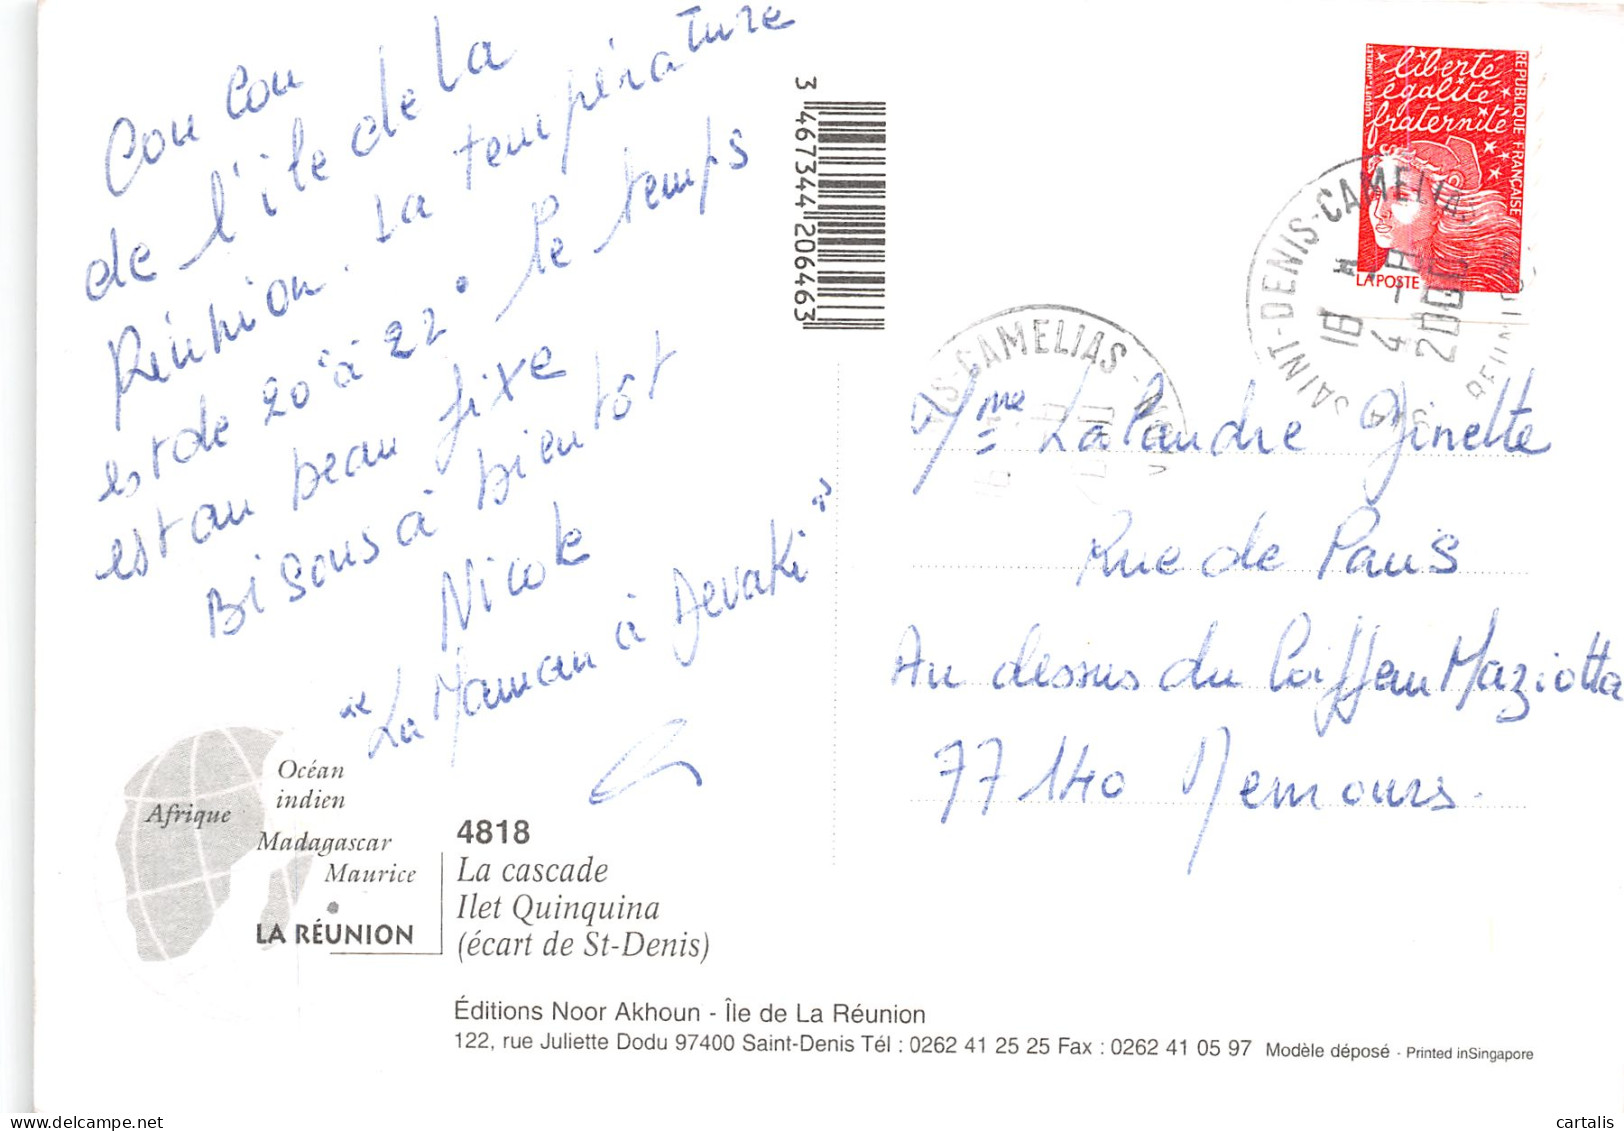 Cou Cou
de l'île de la
Réunion. La température
est de 20° à 22° le temps
est au beau fixe
Bisous à bientôt
Nicole
"La Maman à Devaki"
3 467344 206463
liberté
égalité
fraternité
REPUBLIQUE FRANÇAISE
LA POSTE
SAINT-DENIS-CAMELIAS
16 H
4 - 4
IS-CAMELIAS
Mme LaPaudre Ginette
Rue de Paris
Au dessus du Coiffeur Maziotta
77140 Nemours.
Afrique
Océan
indien
Madagascar
Maurice
LA RÉUNION
4818
La cascade
Ilet Quinquina
(écart de St-Denis)
Éditions Noor Akhoun - Île de La Réunion
122, rue Juliette Dodu 97400 Saint-Denis Tél : 0262 41 25 25 Fax : 0262 41 05 97 Modèle déposé - Printed inSingapore
cartalis
delcampe.net